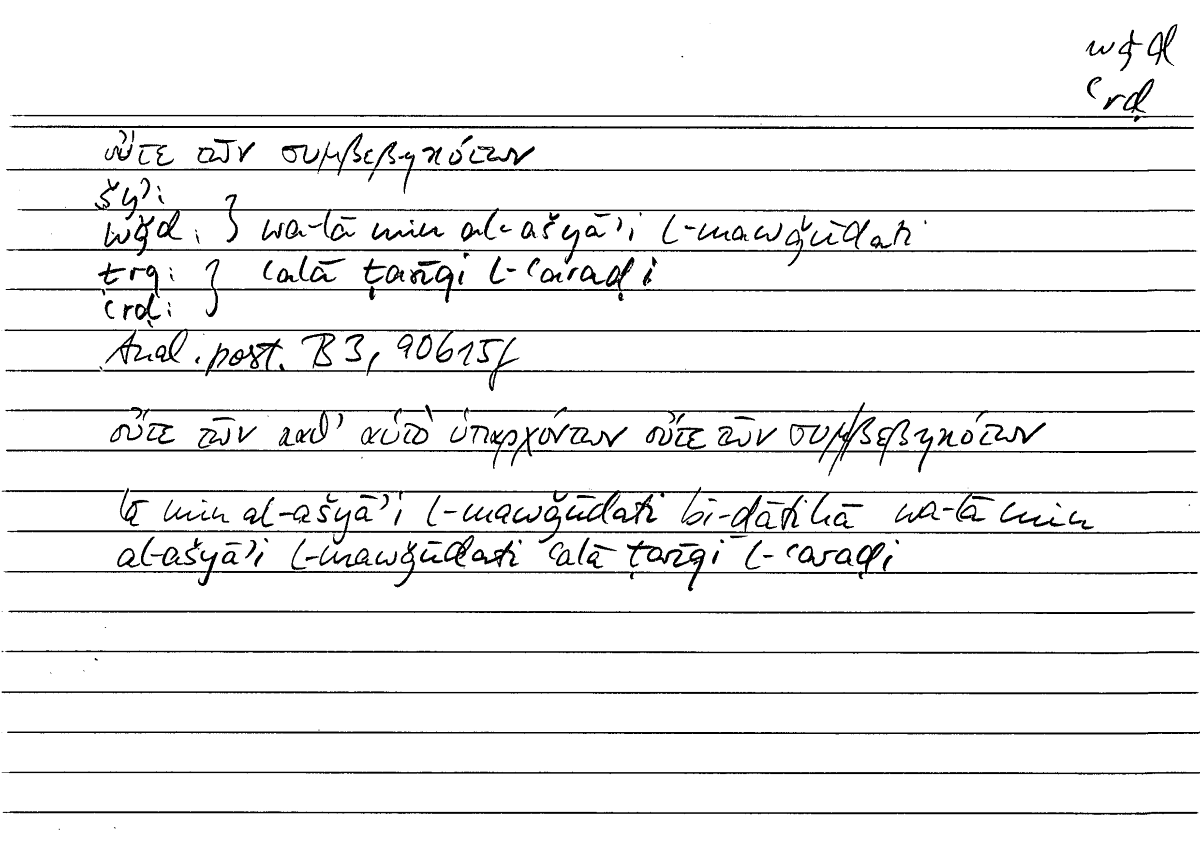 wǧd
ʿrḍ
οὔτε τῶν συμβεβηκότων
šyʾ:
wǧd: } wa-lā min al-ašyāʾi l-mawǧūdati
ṭrq: } ʿalā ṭarīqi l-ʿaraḍi
ʿrḍ:
Anal. post. B 3, 90b15f
οὔτε τῶν καθ’ αὑτὸ ὑπαρχόντων οὔτε τῶν συμβεβηκότων
lā min al-ašyāʾi l-mawǧūdati bi-ḏātihā wa-lā min
al-ašyāʾi l-mawǧūdati ʿalā ṭarīqi l-ʿaraḍi